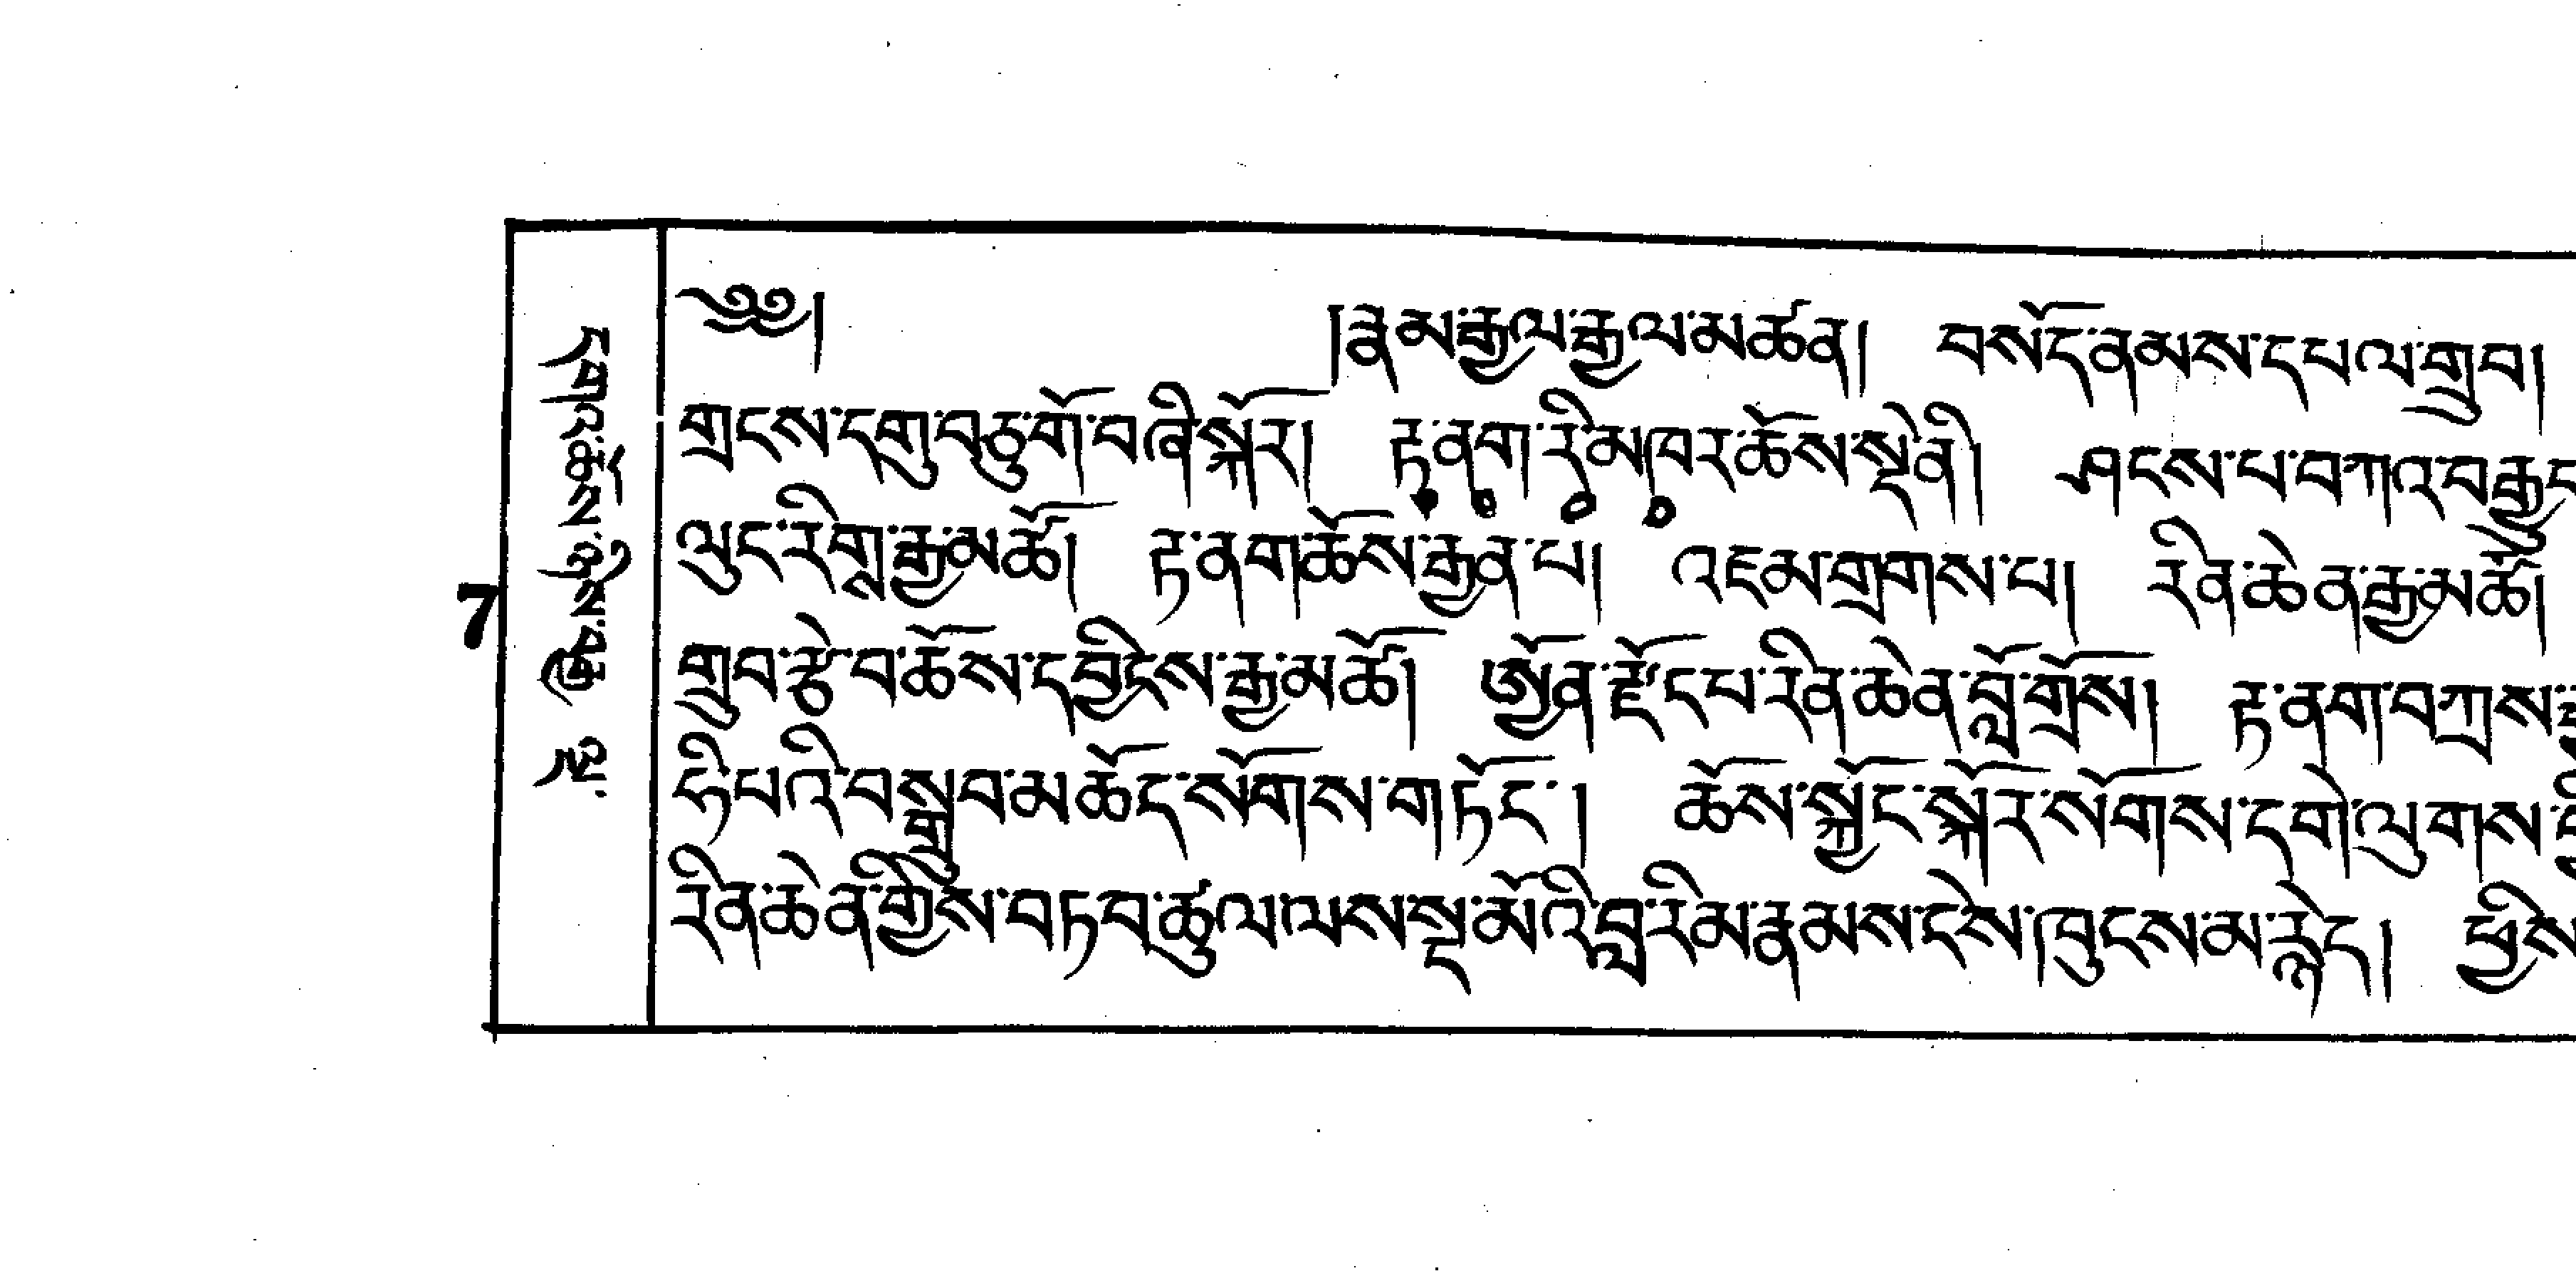 ༄༅། །རྣམ་རྒྱལ་རྒྱལ་མཚན། བསོད་ནམས་དཔལ་གྲུབ།
གྲངས་དགུ་བཅུ་གོ་བཞི་སྐོར། རྟ་ནག་རི་མཁར་ཆོས་སྡེ་ནི། ཤངས་པ་བཀའ་བརྒྱུད
ལུང་རིགླ་རྒྱ་མཚོ། རྟ་ནག་ཆོས་རྒྱན་པ། འཇམ་གྲགས་པ། རིན་ཆེན་རྒྱ་མཚོ།
གྲུབ་རྩེ་བ་ཆོས་དབྱིངས་རྒྱ་མཚོ། ཨྱོན་རྫོང་པ་རིན་ཆེན་བློ་གྲོས། རྟ་ནག་བཀྲས
ཧི་པའི་བསྒྲུབ་མཆོད་སོགས་གཏོང་། ཆོས་སྐྱོང་སྐོར་སོགས་དགེ་ལུགས
རིན་ཆེན་གྱིས་བཏབ་ཚུལ་ལས་སྔ་མོའི་བླ་རིམ་རྣམས་ངེས་ཁུངས་མ་རྙེད། ཕྱིས
7